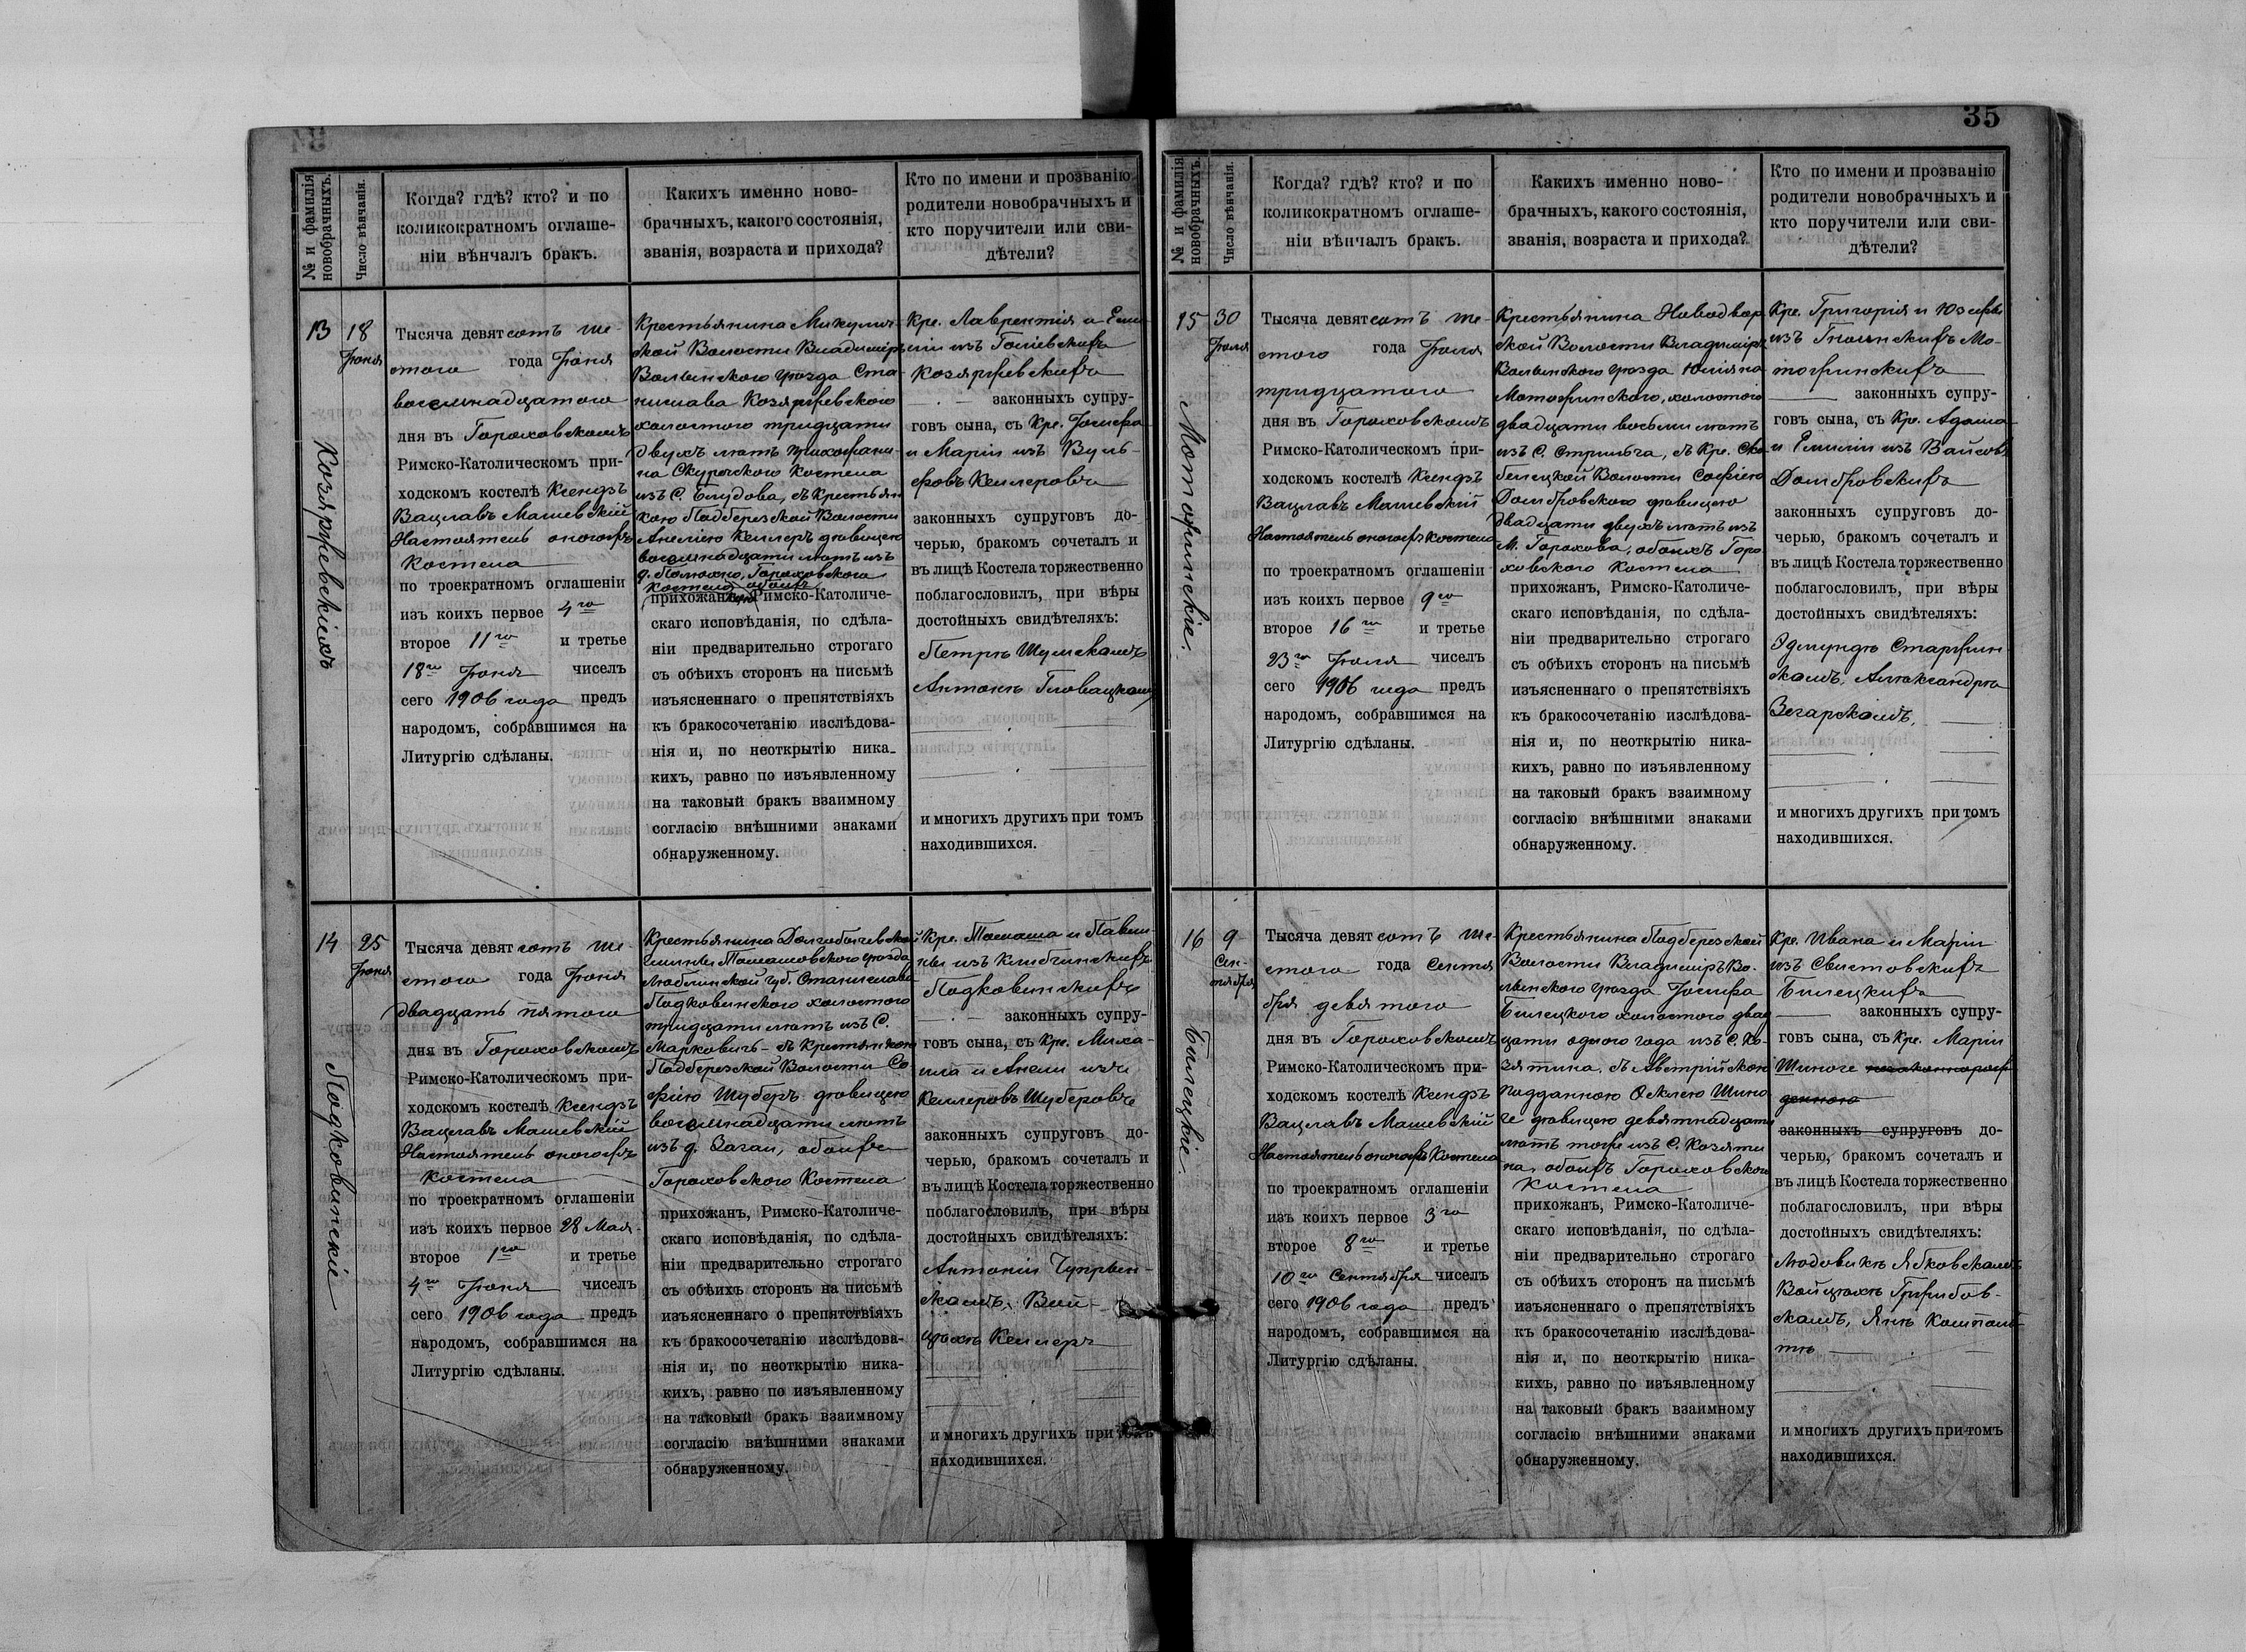 № и фамилія новобрачныхъ.
Число вѣнчанія.
Когда? гдѣ? кто? и по
коликократномъ оглаше-
ніи вѣнчалъ бракъ.
Какихъ именно ново-
брачныхъ, какого состоянія,
званія, возраста и прихода?
Кто по имени и прозванію
родители новобрачныхъ и
кто поручители или сви-
дѣтели?
13
18
Іюня
Тысяча девятсотъ ше-
стого года Іюня
восемнадцатого
дня въ Гороховскомъ
Римско-Католическомъ при-
ходскомъ костелѣ Ксендзъ
Вацлавъ Машевскій
Настоятель оногожъ
Костела
по троекратномъ оглашеніи
изъ коихъ первое 4го
второе 11го и третье
18го Іюня чиселъ
сего 1906 года предъ
народомъ, собравшимся на
Литургію сдѣланы.
Крестьянина Микулич-
ской Волости Владимиръ
Волынского уѣзда Ста-
нислава Козяржевского
холостого тридцати
двухъ лѣтъ прихожани-
на Скуречского Костела
изъ С. Блудова, съ Крестьян
кою Подберезской Волости
Анелею Келлеръ дѣвицею
восемнадцати лѣтъ изъ
д. Полюхно, Гороховского
Костела обоихъ
прихожанъ, Римско-Католиче-
скаго исповѣданія, по сдѣла-
ніи предварительно строгаго
съ обѣихъ сторонъ на письмѣ
изъясненнаго о препятствіяхъ
къ бракосочетанію изслѣдова-
нія и, по неоткрытію ника-
кихъ, равно по изъявленному
на таковый бракъ взаимному
согласію внѣшними знаками
обнаруженному.
Кре. Лаврентія и Еми
ліи изъ Голіевскихъ
Козяржевскихъ
законныхъ супру-
говъ сына, съ Кре. Іосифа
и Маріи изъ Вуль-
фовъ Келлеровъ
законныхъ супруговъ до-
черью, бракомъ сочеталъ и
въ лицѣ Костела торжественно
поблагословилъ, при вѣры
достойныхъ свидѣтеляхъ:
Петрѣ Шумскомъ
Антонѣ Гловацкомъ
и многихъ другихъ при томъ
находившихся.
Козяржевскихъ
14
25
Іюня
Тысяча девятсотъ ше-
стого года Іюня
двадцать пятого
дня въ Гороховскомъ
Римско-Католическомъ при-
ходскомъ костелѣ Ксендзъ
Вацлавъ Машевскій
Настоятель оногожъ
Костела
по троекратномъ оглашеніи
изъ коихъ первое 28 Мая
второе 1го и третье
4го Іюня чиселъ
сего 1906 года предъ
народомъ, собравшимся на
Литургію сдѣланы.
Крестьянина Долгобычевской
гмины Томашовского уѣзда
Люблинской губ. Станислава
Подковинского холостого
тридцати лѣтъ изъ С.
Марковичъ - съ Крестьянкою
Подберезской Волости Со
фіею Шуберъ дѣвицею
восемнадцати лѣтъ
изъ д. Загаи, обоихъ
Гороховского Костела
прихожанъ, Римско-Католиче-
скаго исповѣданія, по сдѣла-
ніи предварительно строгаго
съ обѣихъ сторонъ на письмѣ
изъясненнаго о препятствіяхъ
къ бракосочетанію изслѣдова-
нія и, по неоткрытію ника-
кихъ, равно по изъявленному
на таковый бракъ взаимному
согласію внѣшними знаками
обнаруженному.
Кре. Томаша и Павли-
ны изъ Клибчинскихъ
Подковинскихъ
законныхъ супру-
говъ сына, съ Кре. Миха-
ила и Анели изъ
Келлеровъ Шуберовъ
законныхъ супруговъ до-
черью, бракомъ сочеталъ и
въ лицѣ Костела торжественно
поблагословилъ, при вѣры
достойныхъ свидѣтеляхъ:
Антоніи Чупрын-
скомъ, Вой-
цѣхѣ Келлеръ
и многихъ другихъ при томъ
находившихся.
Подковинскіе
35
№ и фамилія новобрачныхъ.
Число вѣнчанія.
Когда? гдѣ? кто? и по
коликократномъ оглаше-
ніи вѣнчалъ бракъ.
Какихъ именно ново-
брачныхъ, какого состоянія,
званія, возраста и прихода?
Кто по имени и прозванію
родители новобрачныхъ и
кто поручители или сви-
дѣтели?
15
30
Іюля
Тысяча девятсотъ ше-
стого года Іюля
тридцатого
дня въ Гороховскомъ
Римско-Католическомъ при-
ходскомъ костелѣ Ксендзъ
Вацлавъ Машевскій
Настоятель оногожъ костела
по троекратномъ оглашеніи
изъ коихъ первое 9го
второе 16го и третье
23го Іюля чиселъ
сего 1906 года предъ
народомъ, собравшимся на
Литургію сдѣланы.
Крестьянина Новодвор
ской Волости Владимиръ
Волынского уѣзда Юліяна
Мотожинского, холостого
двадцати восьми лѣтъ
изъ С. Стрильча, съ Кре. Ско
белецкой Волости Софіею
Домбровского дѣвицею
двадцати двухъ лѣтъ изъ
М. Горохова, обоихъ Горо
ховского Костела
прихожанъ, Римско-Католиче-
скаго исповѣданія, по сдѣла-
ніи предварительно строгаго
съ обѣихъ сторонъ на письмѣ
изъясненнаго о препятствіяхъ
къ бракосочетанію изслѣдова-
нія и, по неоткрытію ника-
кихъ, равно по изъявленному
на таковый бракъ взаимному
согласію внѣшними знаками
обнаруженному.
Кре. Григорія и Юзефы
изъ Мо-
тожинскихъ
законныхъ супру-
говъ сына, съ Кре. Адама
и Емиліи изъ Вайсовъ
Домбровскихъ
законныхъ супруговъ до-
черью, бракомъ сочеталъ и
въ лицѣ Костела торжественно
поблагословилъ, при вѣры
достойныхъ свидѣтеляхъ:
Эдмундѣ Старжин-
скомъ, Александрѣ
Згарскомъ,
и многихъ другихъ при томъ
находившихся.
Мотожинскіе.
16
9
Сен-
тября
Тысяча девятсотъ ше-
стого года Сентя
бря девятого
дня въ Гороховскомъ
Римско-Католическомъ при-
ходскомъ костелѣ Ксендзъ
Вацлавъ Машевскій
Настоятель оногожъ Костела
по троекратномъ оглашеніи
изъ коихъ первое 3го
второе 8го и третье
10го Сентября чиселъ
сего 1906 года предъ
народомъ, собравшимся на
Литургію сдѣланы.
Крестьянина Подберезской
Волости Владиміръ Во-
лынского уѣзда Іосифа
Билецкого холостого двад
цати одного года изъ С. Ко-
зятина, съ Австрійскою
подданною Оклею Шино
ге дѣвицею девятнадцати
лѣтъ тоже изъ С. Козяти
на, обоихъ Гороховского
Костела
прихожанъ, Римско-Католиче-
скаго исповѣданія, по сдѣла-
ніи предварительно строгаго
съ обѣихъ сторонъ на письмѣ
изъясненнаго о препятствіяхъ
къ бракосочетанію изслѣдова-
нія и, по неоткрытію ника-
кихъ, равно по изъявленному
на таковый бракъ взаимному
согласію внѣшними знаками
обнаруженному.
Кре. Ивана и Маріи
изъ Свистовскихъ
Билецкихъ
законныхъ супру-
говъ сына, съ Кре. Маріи
Шиноге незаконнорож
денною
законныхъ супруговъ до-
черью, бракомъ сочеталъ и
въ лицѣ Костела торжественно
поблагословилъ, при вѣры
достойныхъ свидѣтеляхъ:
Людовикѣ Ябковскомъ
Войцѣхѣ Гржибов-
скомъ, Янѣ
и многихъ другихъ при томъ
находившихся.
Билецкіе.